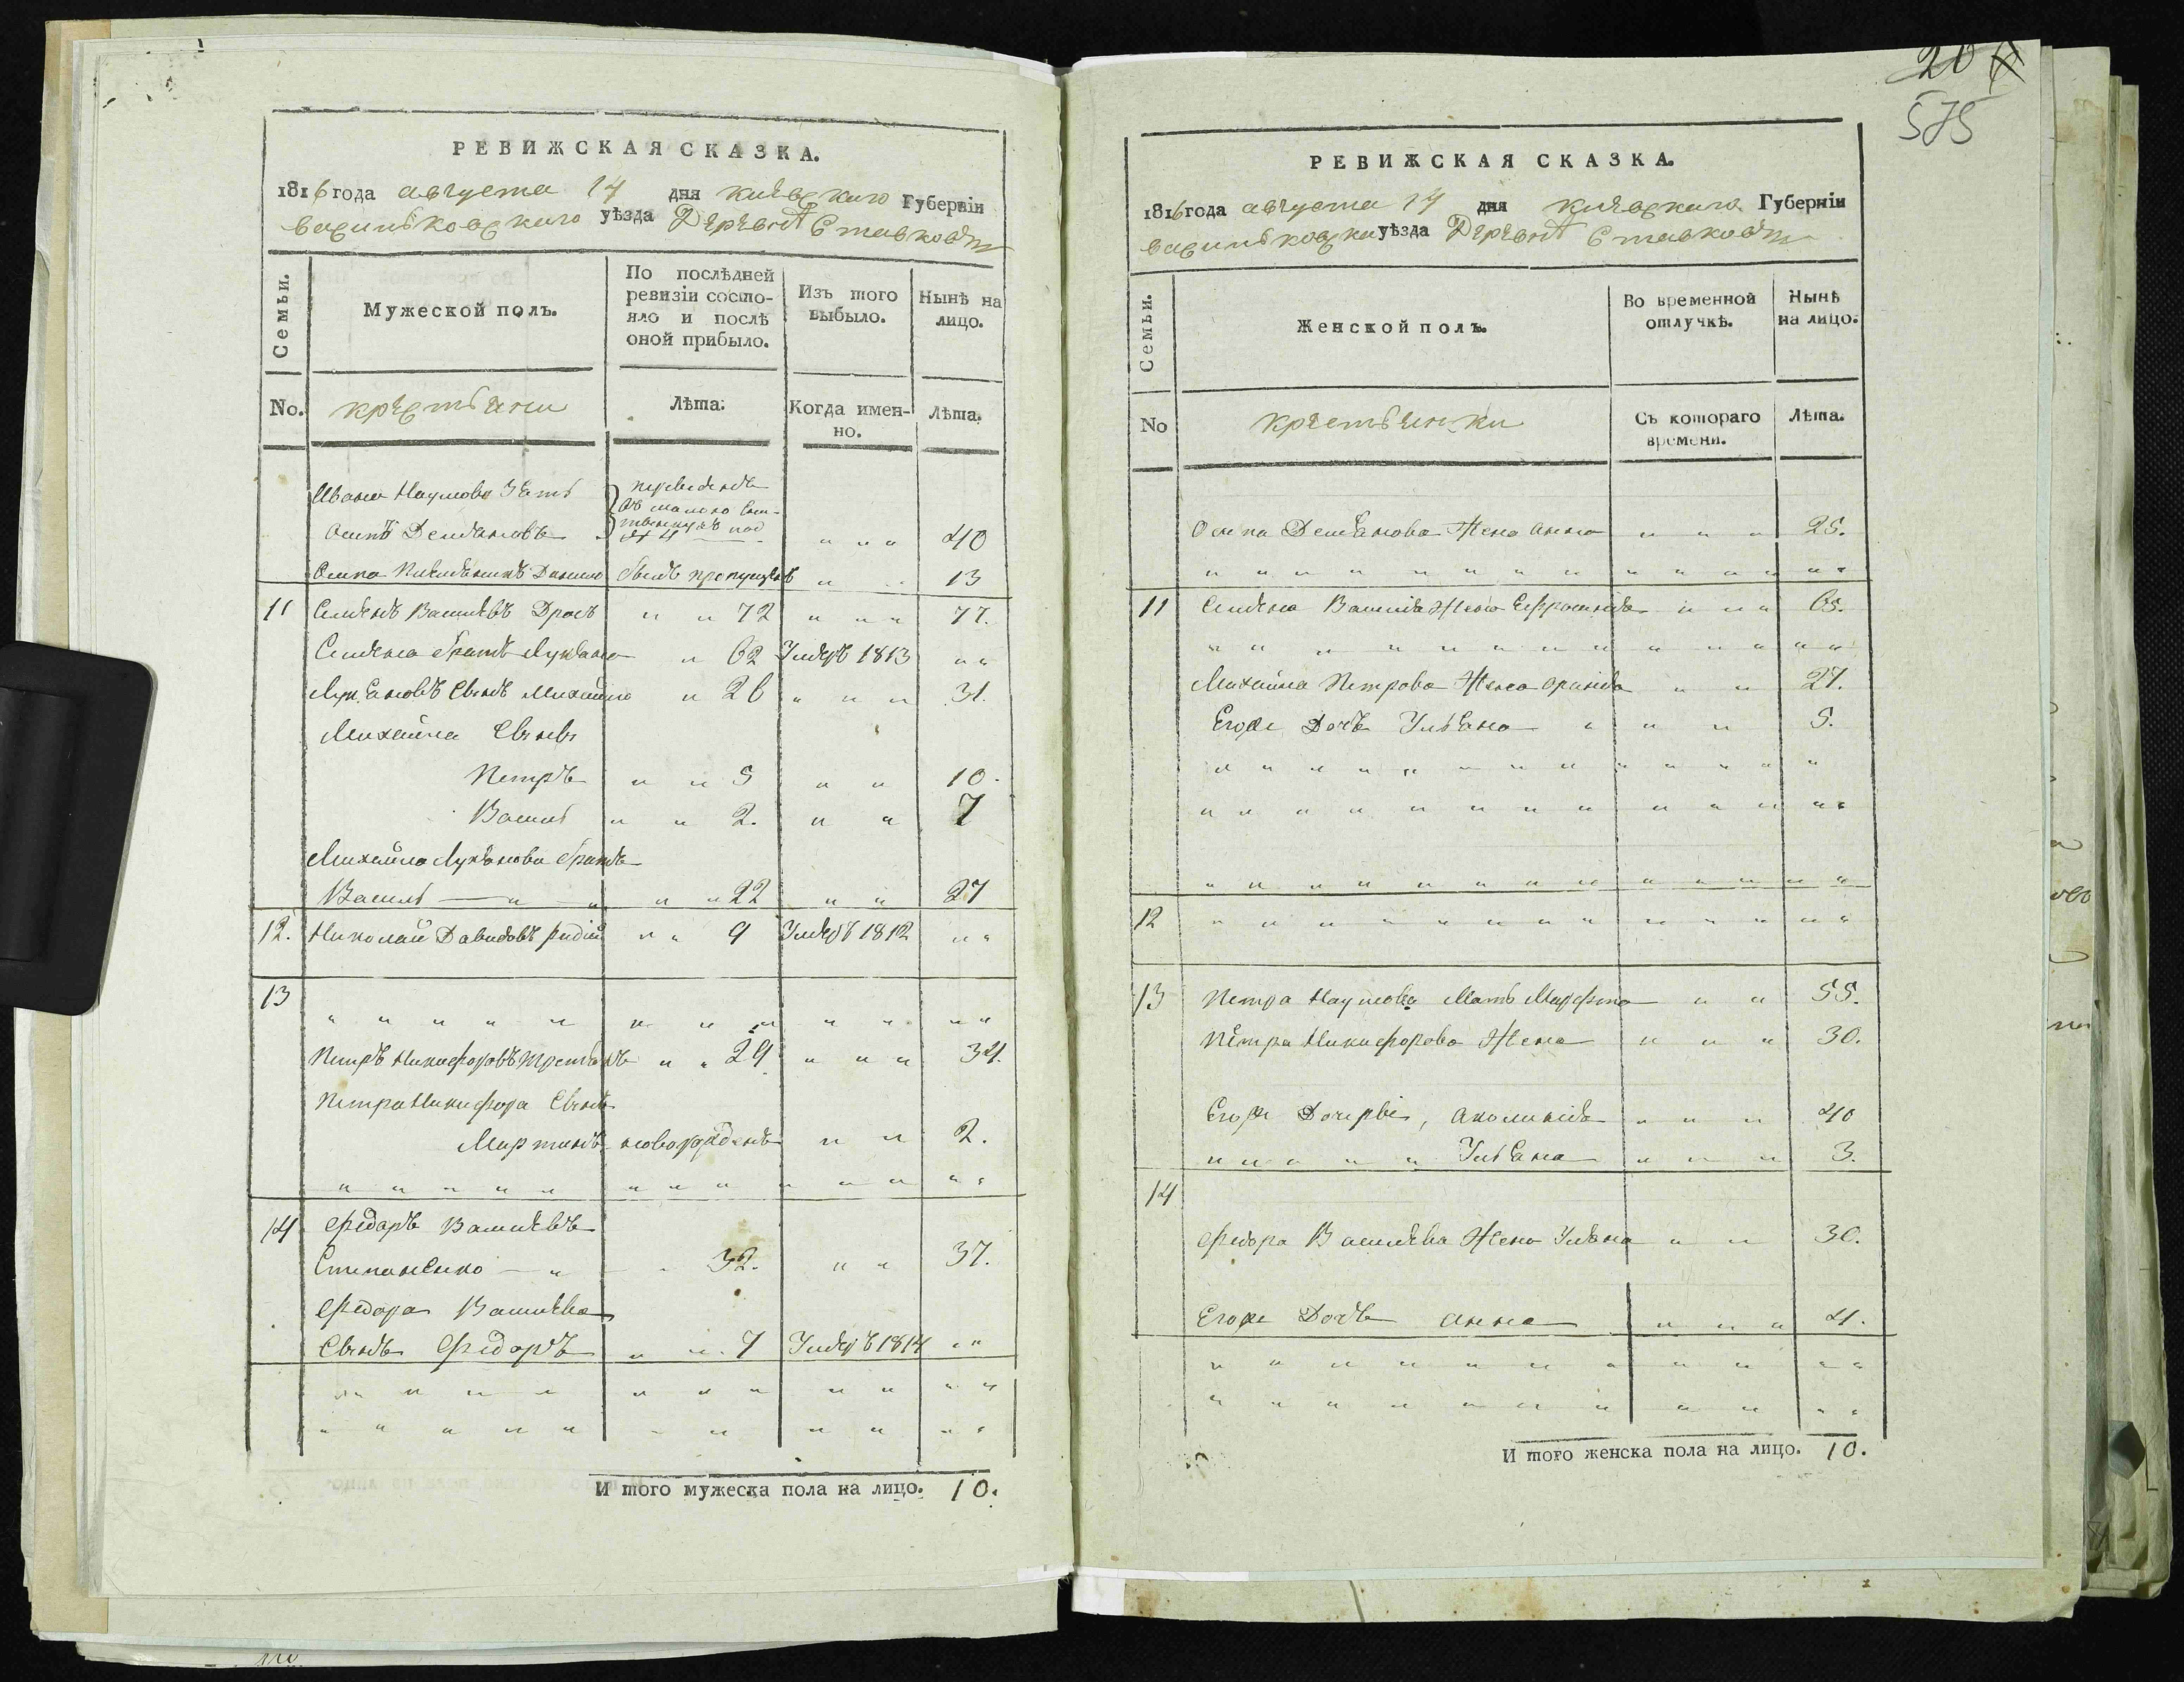 РЕВИЖСКАЯ СКАЗКА.
1816 года августа 14 дня киевскаго Губерніи
васильковскаго уѣзда Деревнѣ Ставковѣ
Семьи.
Мужеской полъ.
По послѣдней ревизіи состо-
яло и послѣ оной прибыло.
Изъ того выбыло.
Нынѣ на лицо.
No. крестьяни Лѣта. Когда имен-
но. Лѣта.
Ивана Наумова Зять
Осипъ Демяновъ 40
Осипа Данило былъ пропущенъ " " 13
11 Семенъ Васильевъ " " 72 " " " 77.
Семена братъ Лукьянъ " 62 Умеръ 1813 " "
Лукяновъ сынъ Михайло " 26 " " " 31.
Михайла сыны
Петръ " " 5 " " 10.
Василь " " 2. " " 7
Михайла Лукянова братъ
Василь " " " " 22 " " 27
12. Николай Давидовъ " " 9 Умеръ 1812 " "
13
" " " " " " " " " " " "
Петръ Никифоровъ " " 29 " " " 34.
Петра Никифора сынъ
Мартинъ новорожденъ " " 2.
" " " " " " " " " " " " "
14 Федоръ Васильевъ
Степаненко " " 32. " " 37.
Федора Васильева
сынъ Федоръ " " 7 Умеръ 1814 " "
И того мужеска пола на лицо. 10.
20
575
РЕВИЖСКАЯ СКАЗКА.
1816 года августа 14 дня киевскаго Губерніи
васильковска уѣзда Деревнѣ Ставковѣ
Семьи.
Женской полъ.
Во временной отлучкѣ.
Нынѣ на лицо.
No крестьянки Съ котораго
времени. Лѣта.
Осипа Демянова жена анна " " " 25.
" " " " " " " " " " " " " "
11 Семена Василя жена Ефросинія " " " 65.
" " " " " " " " " " " " " "
Михайла Петрова жена орина " " 27.
Егоже дочь Ульяна " " " 5.
" " " " " " " " " " " " "
" " " " " " " " " " " " " "
" " " " " " " " " " " " " "
12 " " " " " " " " " " " " " "
13 Петра Наумова мать Марфа " " 55.
Петра Никифорова жена " " " 30.
Егоже дочери, аколинія " " " 40
" " " " " Ульяна " " " 3.
14
Федора Васильева жена Уляна " " 30.
Егоже дочь анна " " " 4.
" " " " " " " " " " " "
" " " " " " " " " " "
И того женска пола на лицо. 10.